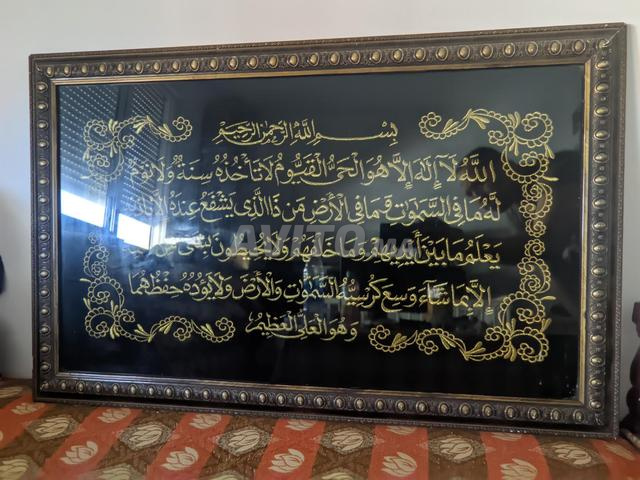 بِسْمِ اللهِ الرَّحْمٰنِ الرَّحِيْمِ
اللهُ لَآ إِلٰهَ إِلَّا هُوَ الْحَيُّ الْقَيُّومُ لَا تَأْخُذُهُ سِنَةٌ وَلَا نَوْمٌ
لَهُ مَا فِي السَّمٰوَاتِ وَمَا فِي الْأَرْضِ مَن ذَا الَّذِي يَشْفَعُ عِنْدَهُ إِلَّا
يَعْلَمُ مَا بَيْنَ أَيْدِيهِمْ وَمَا خَلْفَهُمْ وَلَا يُحِيطُونَ بِشَيْءٍ
إِلَّا بِمَا شَاءَ وَسِعَ كُرْسِيُّهُ السَّمٰوَاتِ وَالْأَرْضَ وَلَا يَؤُدُهُ حِفْظُهُمَا
وَهُوَ الْعَلِيُّ الْعَظِيمُ
AVITO.ma